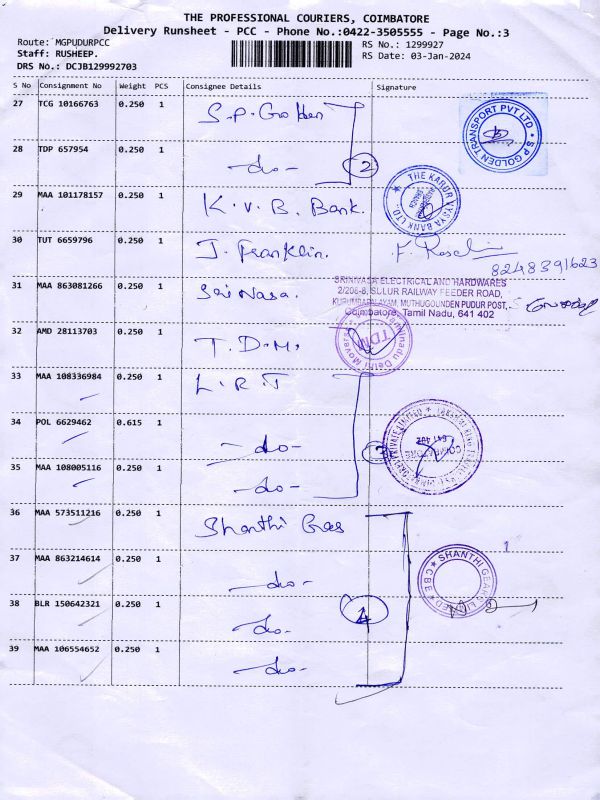 THE PROFESSIONAL COURIERS, COIMBATORE
Delivery Runsheet - PCC - Phone No.:0422-3505555 - Page No.:3
Route: MGPUDURPCC
RS No.: 1299927
Staff: RUSHEEP.
RS Date: 03-Jan-2024
DRS No.: DCJB129992703
S No Consignment No Weight PCS Consignee Details Signature
27 TCG 10166763 0.250 1 S.P. Golden
S P GOLDEN TRANSPORT PVT LTD
28 TDP 657954 0.250 1 -do- 2
29 MAA 101178157 0.250 1 K.V.B. Bank.
THE KARUR VYSYA BANK LTD.
30 TUT 6659796 0.250 1 J. Franklin.
8248391623
31 MAA 863081266 0.250 1 Sri Nasa.
SRINIVASA ELECTRICAL AND HARDWARES
2/206-8, SULUR RAILWAY FEEDER ROAD,
KURUMBAPALAYAM, MUTHUGOUNDEN PUDUR POST,
Coimbatore, Tamil Nadu, 641 402
32 AMD 28113703 0.250 1 T.D.M.
Tamilnadu Delhi Movers
TDM
33 MAA 108336984 0.250 1 L.R.T
34 POL 6629462 0.615 1 -do-
3
35 MAA 108005116 0.250 1 -do-
COIMBATORE
641 402
PRIVATE LIMITED
36 MAA 573511216 0.250 1 Shanthi Gears
37 MAA 863214614 0.250 1 -do-
SHANTHI GEARS LIMITED
CBE
38 BLR 150642321 0.250 1 -do- 4
39 MAA 106554652 0.250 1 -do-